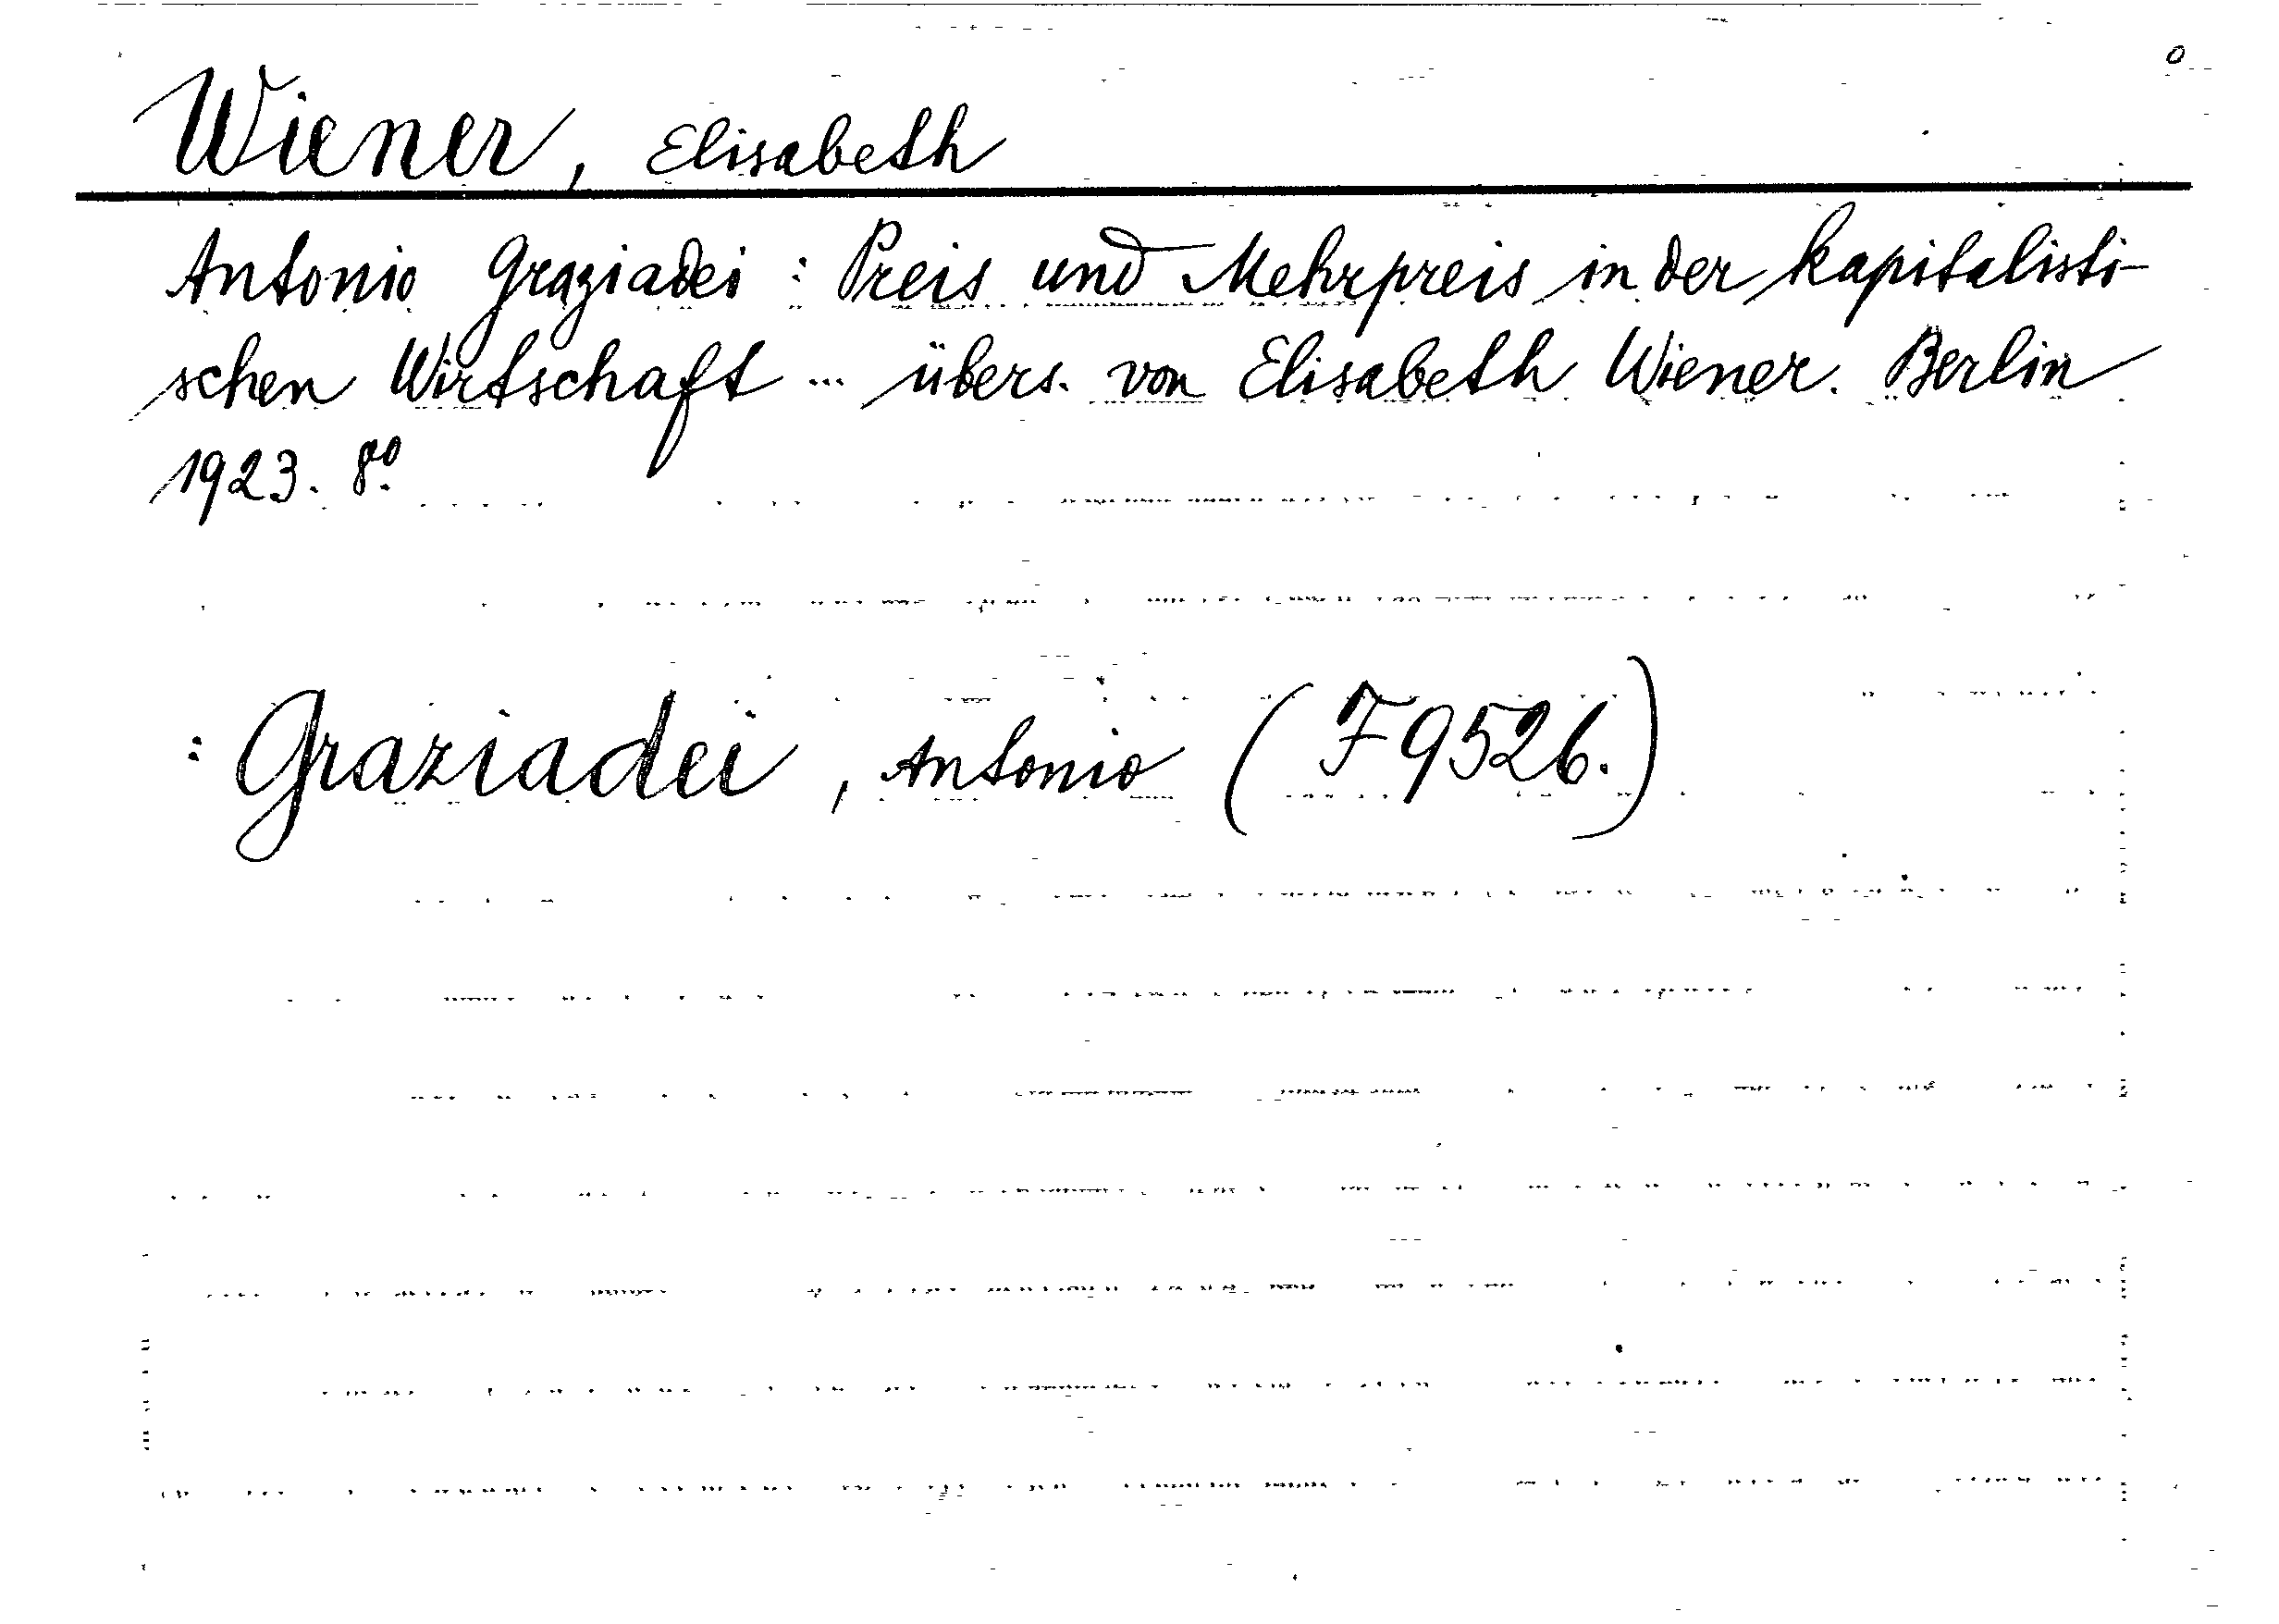 Wiener, Elisabeth
Antonio Graziadei : Preis und Mehrpreis in der kapitalisti-
schen Wirtschaft ... übers. von Elisabeth Wiener. Berlin
1923. 8º.
: Graziadei, Antonio (F 9526.)